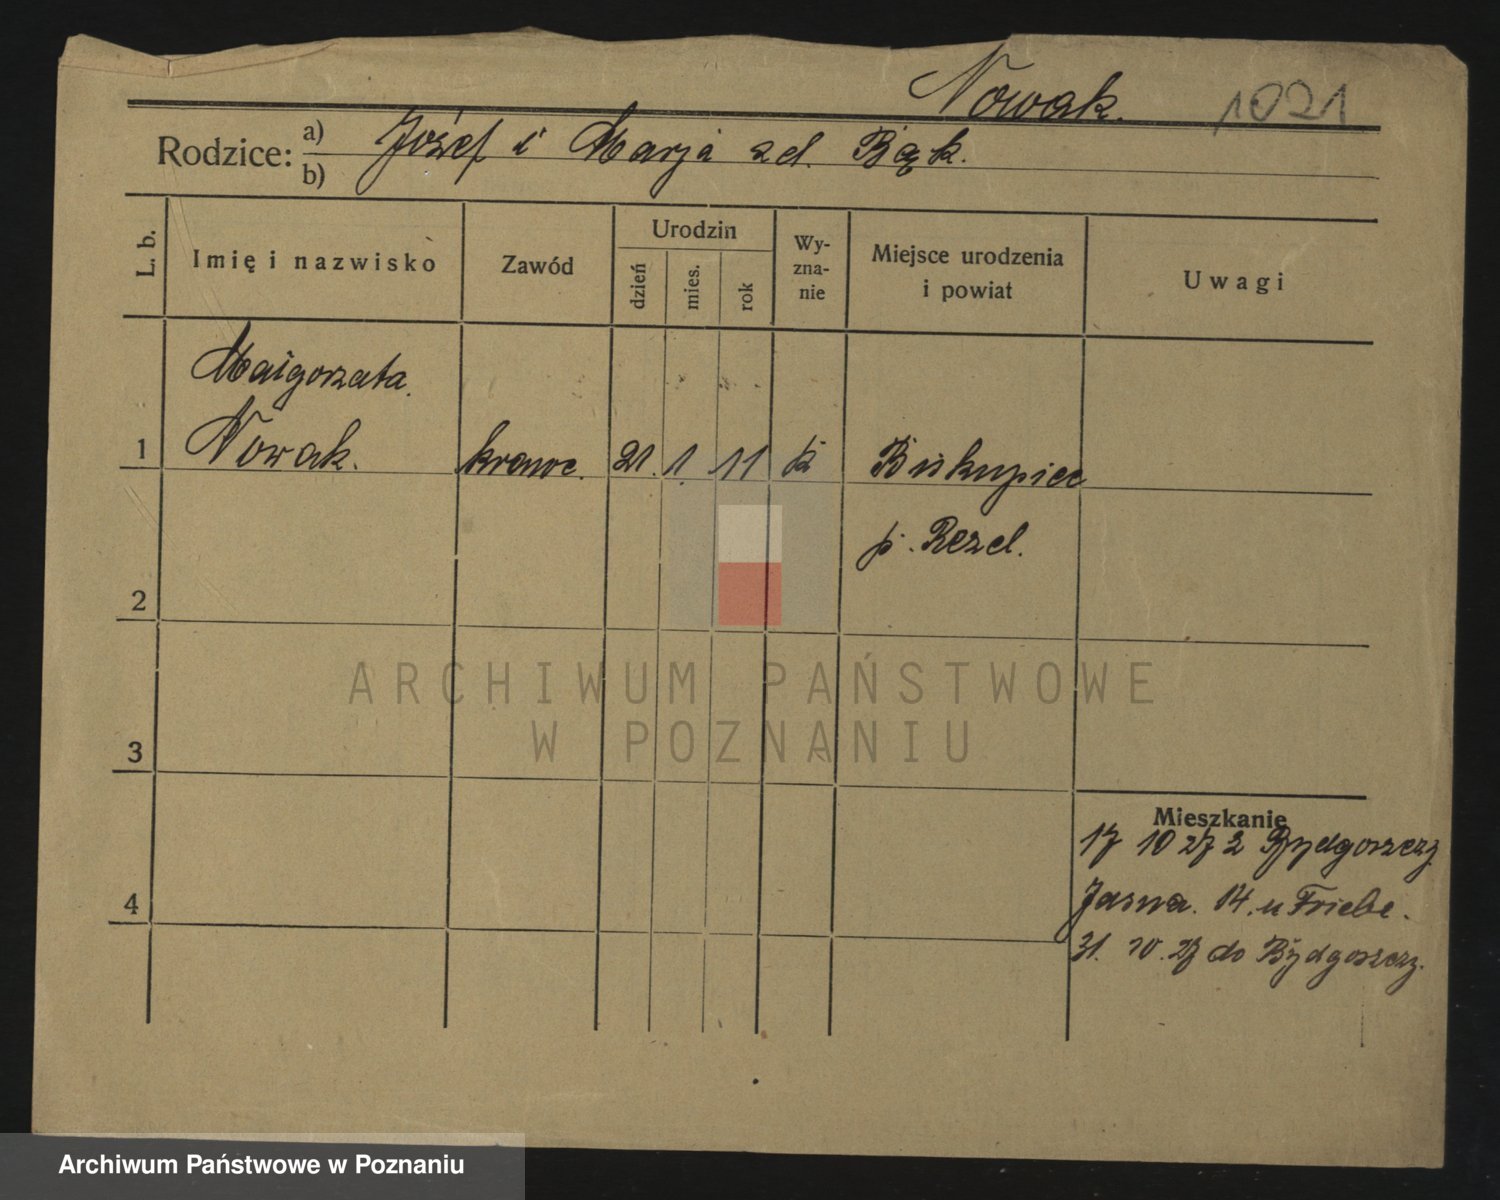 Nowak. 1021
Rodzice: a) b) Józef i Marja zd. Bąk.
L. b. Imię i nazwisko Zawód Urodzin dzień mies. rok Wyzna-nie Miejsce urodzenia i powiat Uwagi
Małgorzata
1 Nowak. krawc. 21. 1 11 k Biskupiec
p. Rezel.
2
3
4
Mieszkanie
17 10 27 z Bydgoszczy
Jasna. 14. u Friebe.
31. 10. 27 do Bydgoszczy.
ARCHIWUM PAŃSTWOWE
W POZNANIU
Archiwum Państwowe w Poznaniu